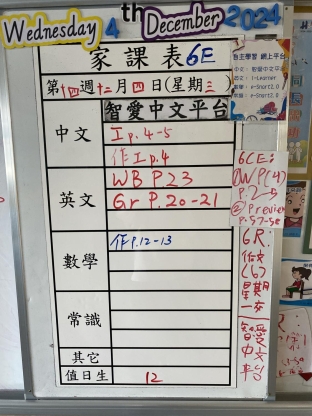 Wednesday 4th December 2024
家課表 6E
第十四週十二月四日(星期三
自主學習 網上平台
中文：智愛中文平台
英文：i-Learner
智愛中文平台
中文
工p.4-5
作工p.4
英文
WB P.23
Gr P.20-21
數學
作P.12-13
常識
其它
值日生
12
6CE:
P.2-5
6R:
作文
(6)
星期
一交
智愛
中文
平台